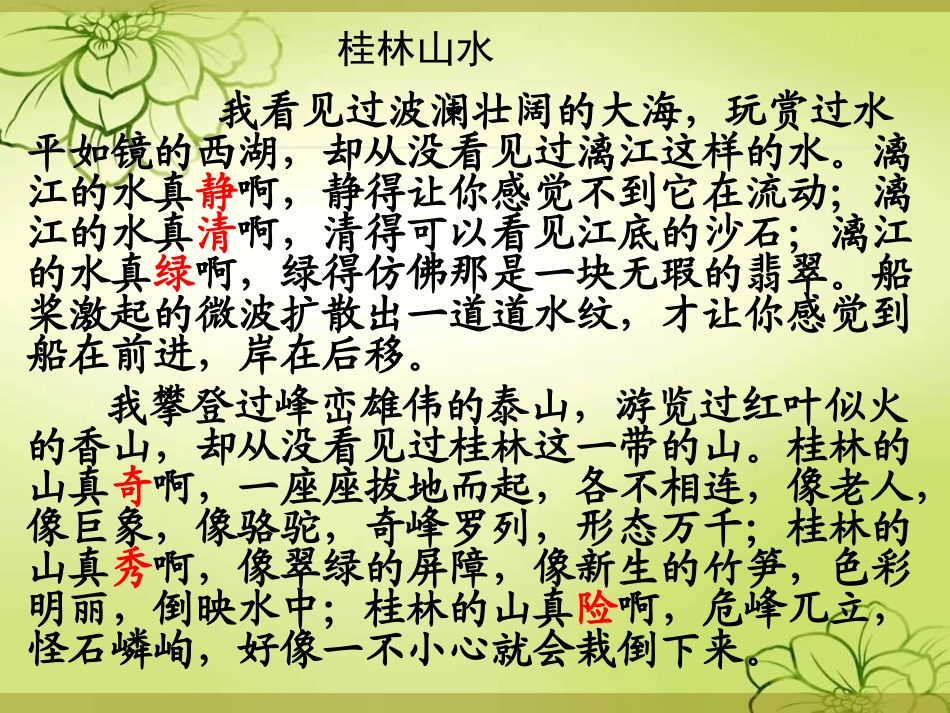 桂林山水
我看见过波澜壮阔的大海，玩赏过水
平如镜的西湖，却从没看见过漓江这样的水。漓
江的水真静啊，静得让你感觉不到它在流动；漓
江的水真清啊，清得可以看见江底的沙石；漓江
的水真绿啊，绿得仿佛那是一块无瑕的翡翠。船
桨激起的微波扩散出一道道水纹，才让你感觉到
船在前进，岸在后移。
我攀登过峰峦雄伟的泰山，游览过红叶似火
的香山，却从没看见过桂林这一带的山。桂林的
山真奇啊，一座座拔地而起，各不相连，像老人，
像巨象，像骆驼，奇峰罗列，形态万千；桂林的
山真秀啊，像翠绿的屏障，像新生的竹笋，色彩
明丽，倒映水中；桂林的山真险啊，危峰兀立，
怪石嶙峋，好像一不小心就会栽倒下来。